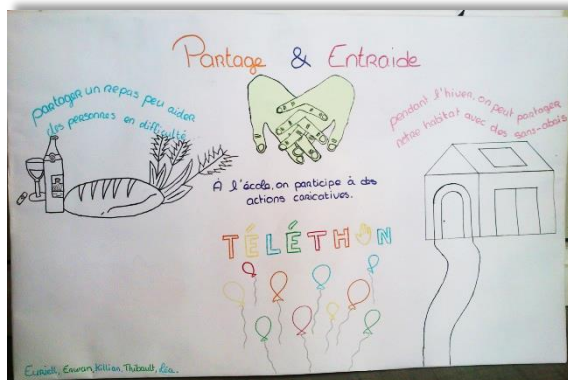 Partage & Entraide
partager un repas peu aider
des personnes en difficulté
pendant l'hiver, on peut partager
notre habitat avec des sans-abris
À l'école, on participe à des
actions caricatives.
TÉLÉTHON
Euriell, Erwan, Killian, Thibault, Léa.